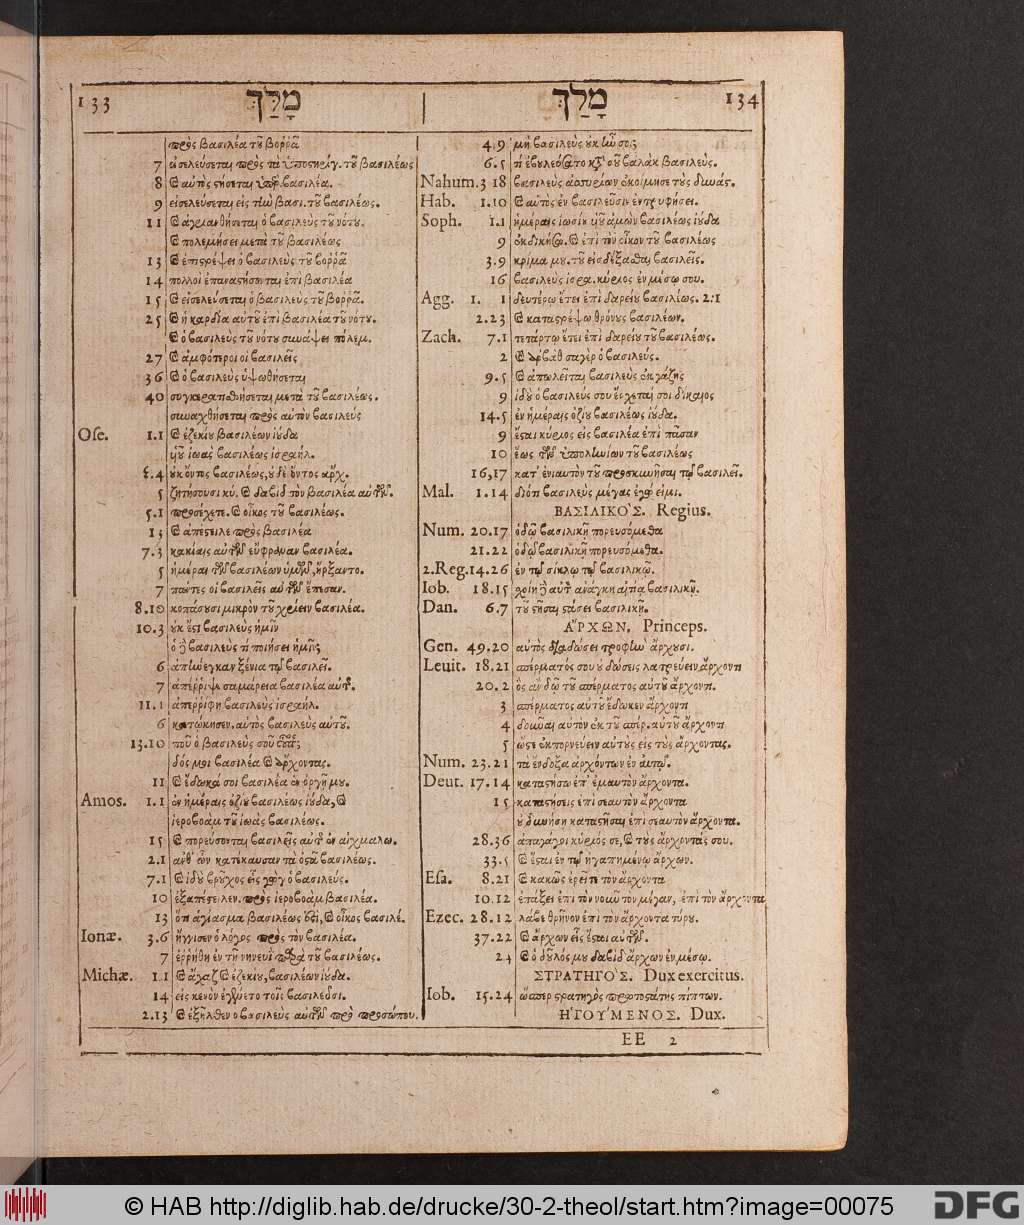 133 מָלַךְ
πρὸς βασιλέα τοῦ βοῤῥᾶ
7 εἰσελεύσεται πρὸς τὰ ὑποστηρίγ. τοῦ βασιλέως
8 καὶ αὐτὸς στήσεται ὑπὲρ βασιλέα.
9 εἰσελεύσεται εἰς τὴν βασι. τοῦ βασιλέως.
11 καὶ ἀγριανθήσεται ὁ βασιλεὺς τοῦ νότου.
καὶ πολεμήσει μετὰ τοῦ βασιλέως
13 καὶ ἐπιστρέψει ὁ βασιλεὺς τοῦ βοῤῥᾶ
14 πολλοὶ ἐπαναστήσονται ἐπὶ βασιλέα
15 καὶ εἰσελεύσεται ὁ βασιλεὺς τοῦ βοῤῥᾶ.
25 καὶ ἡ καρδία αὐτοῦ ἐπὶ βασιλέα τοῦ νότου.
καὶ ὁ βασιλεὺς τοῦ νότου συνάψει πόλεμ.
27 καὶ ἀμφότεροι οἱ βασιλεῖς
36 καὶ ὁ βασιλεὺς ὑψωθήσεται
40 συγκεραστιθήσεται μετὰ τοῦ βασιλέως.
συναχθήσεται πρὸς αὐτὸν βασιλεὺς
Ose. 1.1 καὶ ἐζεκίου βασιλέων ἰούδα
υἱοῦ ἰωας βασιλέως ἰσραήλ.
3.4 οὐκ ὄντος βασιλέως, οὐδὲ ὄντος ἄρχ.
5 ζητήσουσι κύ. καὶ δαβὶδ τὸν βασιλέα αὐτῶν.
5.1 προσέχετε. καὶ οἶκος τοῦ βασιλέως.
13 καὶ ἀπέστειλε πρὸς βασιλέα
7.3 κακίαις αὐτῶν εὔφραναν βασιλέα.
5 ἡμέραι τῶν βασιλέων ὑμῶν, ἤρξαντο.
7 πάντες οἱ βασιλεῖς αὐτῶν ἔπεσαν.
8.10 κοπάσουσι μικρὸν τοῦ χρίειν βασιλέα.
10.3 οὐκ ἔστι βασιλεὺς ἡμῖν
ὁ δὲ βασιλεὺς τί ποιήσει ἡμῖν;
6 ἀπήνεγκαν ξένια τῷ βασιλεῖ.
7 ἀπέῤῥιψε σαμάρεια βασιλέα αὐτῆς.
11.1 ἀπεῤῥίφη βασιλεὺς ἰσραήλ.
6 κατώκησεν. αὐτὸς βασιλεὺς αὐτοῦ.
13.10 ποῦ ὁ βασιλεὺς σοῦ οὗτος;
δός μοι βασιλέα καὶ ἄρχοντας.
11 καὶ ἔδωκά σοι βασιλέα ἐν ὀργῇ μου.
Amos. 1.1 ἐν ἡμέραις ὀζίου βασιλέως ἰούδα, καὶ
ἱεροβοὰμ τοῦ ἰωὰς βασιλέως.
15 καὶ πορεύσονται βασιλεῖς αὐτῆς ἐν αἰχμαλω.
2.1 ἀνθ' ὧν κατέκαυσαν τὰ ὀστᾶ βασιλέως.
7.1 καὶ ἰδοὺ βροῦχος εἷς γὼγ ὁ βασιλεύς.
10 ἐξαπέστειλεν. πρὸς ἱεροβοὰμ βασιλέα.
13 ὅτι ἁγίασμα βασιλέως ἐστὶ, καὶ οἶκος βασιλέ.
Ionæ. 3.6 ἤγγισεν ὁ λόγος πρὸς τὸν βασιλέα.
7 ἐῤῥήθη ἐν τῇ νηνευῒ παρὰ τοῦ βασιλέως.
Michæ. 1.1 καὶ ἄχαζ καὶ ἐζεκίου, βασιλέων ἰούδα.
14 εἰς κενὸν ἐγένετο τοῖς βασιλεῦσι.
2.13 καὶ ἐξῆλθεν ὁ βασιλεὺς αὐτῶν πρὸ προσώπου.
מָלַךְ 134
4.9 μὴ βασιλεὺς οὐκ ἦν σοι;
6.5 τί ἐβουλεύσατο κατὰ σοῦ βαλὰκ βασιλεύς.
Nahum. 3 18 βασιλεὺς ἀσσυρίων ἐκοίμησε τοὺς δυνάς.
Hab. 1.10 καὶ αὐτὸς ἐν βασιλεῦσιν ἐντρυφήσει.
Soph. 1.1 ἡμέραις ἰωσίου υἱοῦ ἀμὼν βασιλέως ἰούδα
9 ἐκδικήσω. καὶ ἐπὶ τὸν οἶκον τοῦ βασιλέως
3.9 κρίμα μου. τοῦ εἰσδέξασθαι βασιλεῖς.
16 βασιλεὺς ἰσρα. κύριος ἐν μέσῳ σου.
Agg. 1. 1 δευτέρῳ ἔτει ἐπὶ δαρείου βασιλέως. 2.1
2.23 καὶ καταστρέψω θρόνους βασιλέων.
Zach. 7.1 τετάρτῳ ἔτει ἐπὶ δαρείου τοῦ βασιλέως.
2 καὶ ἀρβὰθ σαγὲρ ὁ βασιλεύς.
9.5 καὶ ἀπολεῖται βασιλεὺς ἐκ γάζης
9 ἰδοὺ ὁ βασιλεὺς σου ἔρχεταί σοι δίκαιος
14.5 ἐν ἡμέραις ὀζίου βασιλέως ἰούδα.
9 ἔσται κύριος εἰς βασιλέα ἐπὶ πᾶσαν
10 ἕως τῶν ὑποληνίων τοῦ βασιλέως
16,17 κατ' ἐνιαυτὸν τοῦ προσκυνῆσαι τῷ βασιλεῖ.
Mal. 1.14 διότι βασιλεὺς μέγας ἐγώ εἰμι.
ΒΑΣΙΛΙΚΟ'Σ. Regius.
Num. 20.17 ὁδῷ βασιλικῇ πορευσόμεθα
21.22 ὁδῷ βασιλικῇ πορευσόμεθα.
2.Reg. 14.26 ἐν τῷ σίκλῳ τῷ βασιλικῷ.
Iob. 18.15 αἰτία βασιλική.
Dan. 6.7 τοῦ στῆσαι στάσει βασιλικῇ.
ἌΡΧΩΝ. Princeps.
Gen. 49.20 αὐτὸς διαδώσει τροφὴν ἄρχουσι.
Leuit. 18.21 σπέρματός σου οὐ δώσεις λατρεύειν ἄρχοντι
20.2 ὃς ἂν δῷ τοῦ σπέρματος αὐτοῦ ἄρχοντι.
3 σπέρματος αὐτοῦ ἔδωκεν ἄρχοντι
4 δοῦναι αὐτὸν ἐκ τοῦ σπέρ. αὐτοῦ ἄρχοντι
5 ὥστε ἐκπορνεύειν αὐτοὺς εἰς τοὺς ἄρχοντας.
Num. 23.21 τὰ ἔνδοξα ἀρχόντων ἐν αὐτῷ.
Deut. 17.14 καταστήσω ἐπ' ἐμαυτὸν ἄρχοντα.
15 καταστήσεις ἐπὶ σεαυτὸν ἄρχοντα
οὐ δυνήσῃ καταστῆσαι ἐπὶ σεαυτὸν ἄρχοντα.
28.36 ἀπαγάγοι κύριός σε, καὶ τοὺς ἄρχοντάς σου.
33.5 καὶ ἔσται ἐν τῷ ἠγαπημένῳ ἄρχων.
Esa. 8.21 καὶ κακῶς ἐρεῖτε τὸν ἄρχοντα
10.12 ἐπάξει ἐπὶ τὸν νοῦν τὸν μέγαν, ἐπὶ τὸν ἄρχοντα
Ezec. 28.12 λάβε θρῆνον ἐπὶ τὸν ἄρχοντα τύρου.
37.22 καὶ ἄρχων εἷς ἔσται αὐτῶν.
24 καὶ ὁ δοῦλός μου δαβὶδ ἄρχων ἐν μέσῳ.
ΣΤΡΑΤΗΓΟ'Σ. Dux exercitus.
Iob. 15.24 ὥσπερ στρατηγὸς πρωτοστάτης πίπτων.
Η'ΓΟΥ'ΜΕΝΟΣ. Dux.
EE 2
© HAB http://diglib.hab.de/drucke/30-2-theol/start.htm?image=00075
DFG